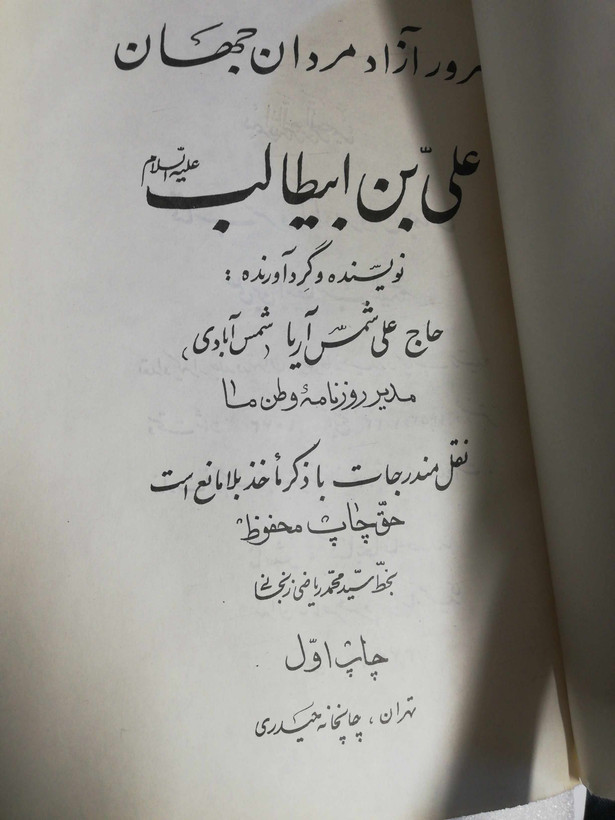 سرور آزاد مردان جهان
علی بن ابیطالب علیه السلام
نویسنده و گردآورنده :
حاج علی شمس آریا (شمس آبادی)
مدیر روزنامهٔ وطن ما
نقل مندرجات با ذکر مأخذ بلامانع است
حقّ چاپ محفوظ
بخطّ سیّد محمّد ریاضی زنجانی
چاپ اوّل
تهران ، چاپخانه حیدری